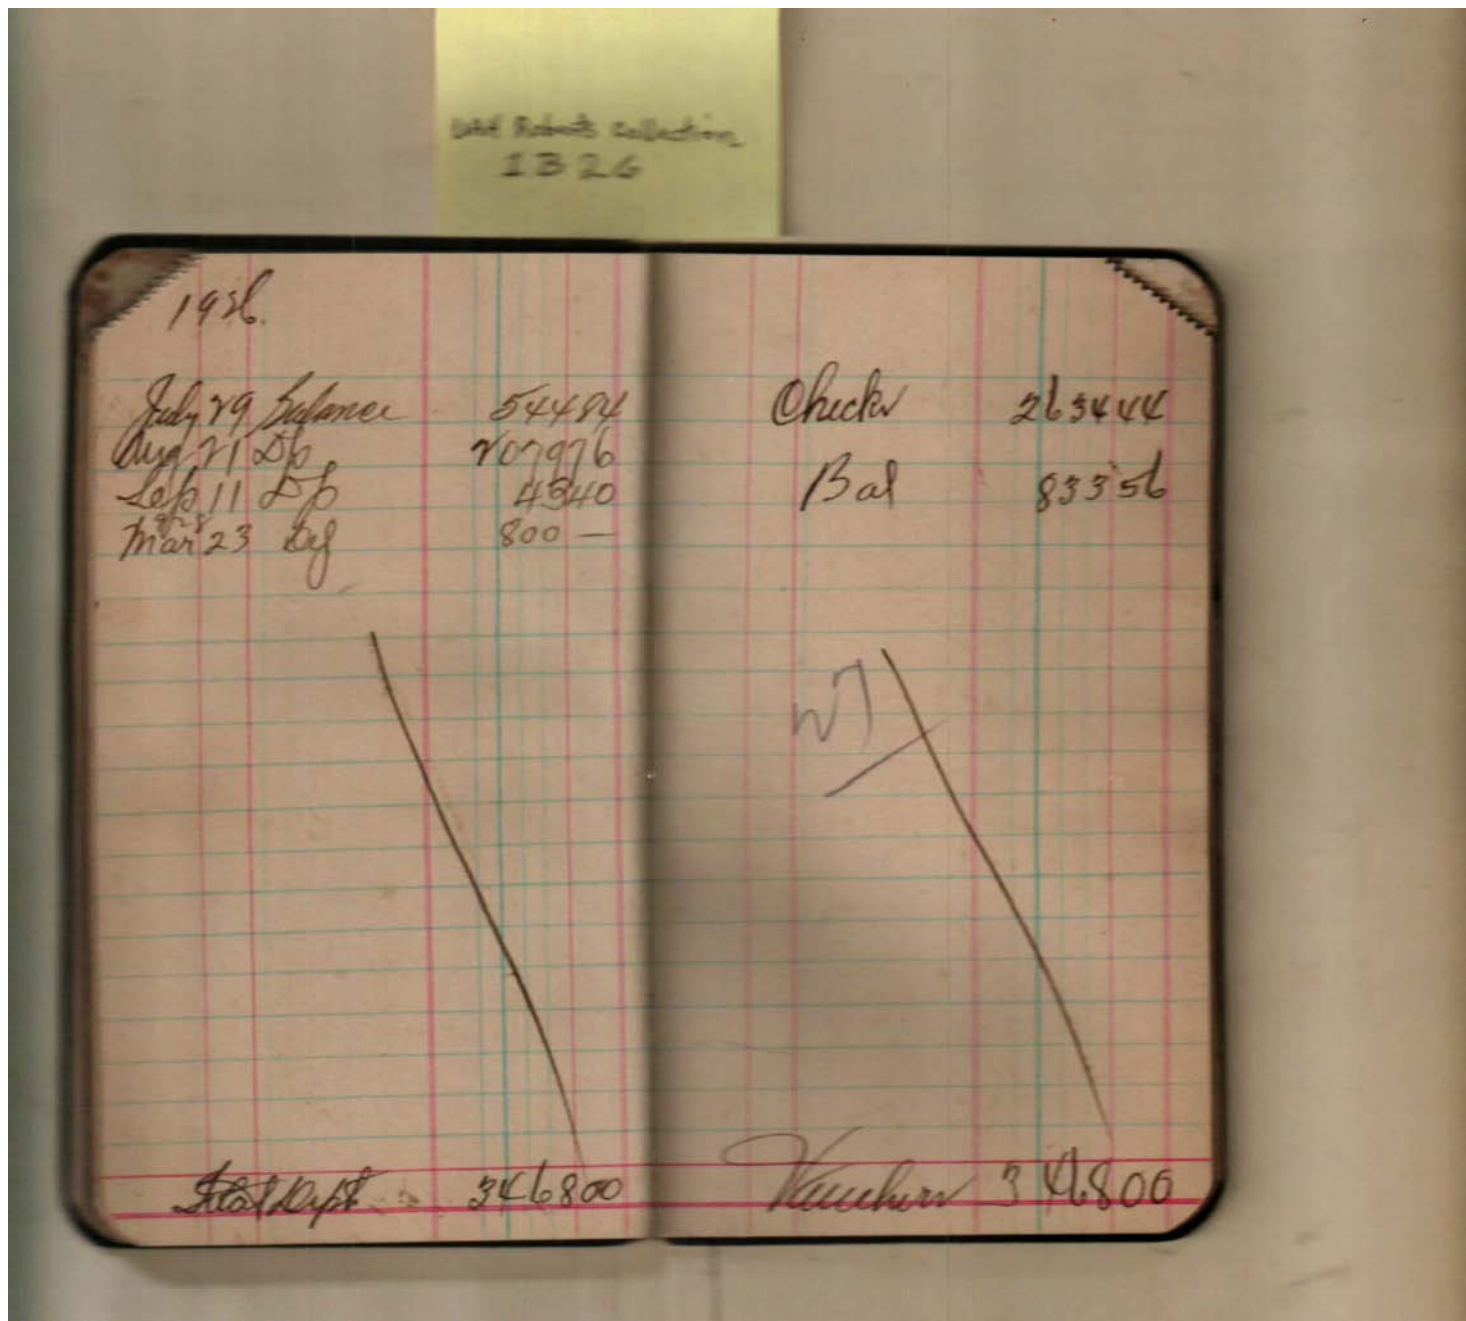 UAH Roberts Collection
1B26
1926.
July 29 Balance 54484
Aug 21 Dp 207976
Sep 11 Dp 4340
Mar 23 Dep 800 —
Total Dept 346800
Checks 263444
Bal 83356
Vouchers 346800